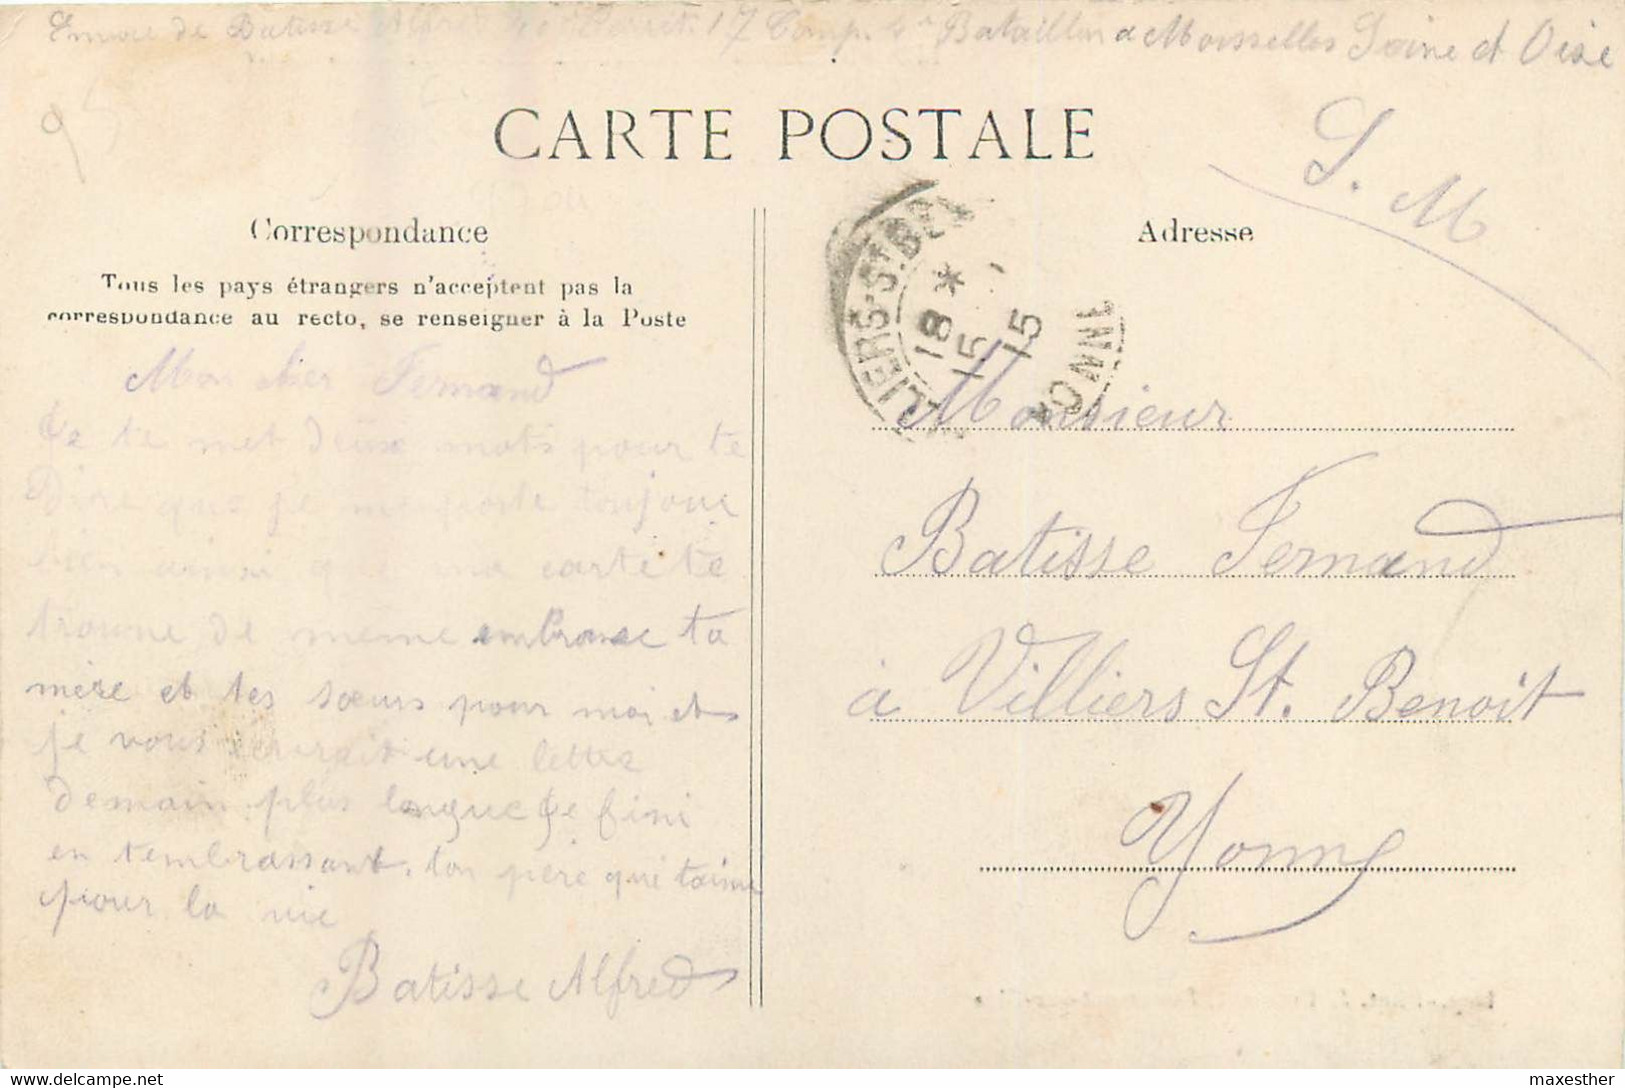 Envoie de Batisse Alfred 46e Territ. 17 Comp. 4e Bataillon a Moisselles Seine et Oise
95
CARTE POSTALE
S. M
Correspondance
Adresse
Tous les pays étrangers n'acceptent pas la
correspondance au recto, se renseigner à la Poste
VILLIERS-ST-BENOIT
18 *
15
15
YONNE
Mon cher Fernand
Je te met deux mots pour te
Dire que je me porte toujour
bien ainsi que ma carte te
trouve de meme embrasse ta
mère et tes sœurs pour moi et
je vous ecrirait une lettre
Demain plus longue Je fini
en t'embrassant. ton père qui t'aime
pour la vie
Batisse Alfred
Monsieur
Batisse Fernand
à Villiers St. Benoit
Yonne
maxesther